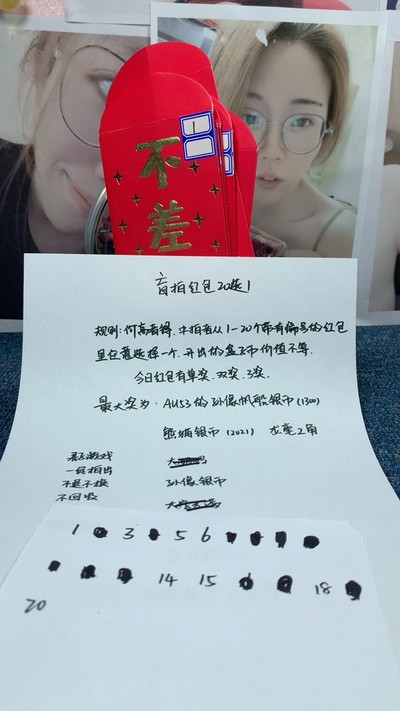 不差
1
盲拍红包20选1
规则:价高者得,中拍者从1-20个带有编号的红包
里任意选择一个,开出的盒子币价值不等.
今日红包有单奖,双奖,3奖
最大奖为:AU53的孙像帆船银币(1300)
熊猫银币(2021) 龙毫2角
娱乐游戏
一经拍出 孙像银币
不退不换
不回收
1 3 5 6
14 15 18
20